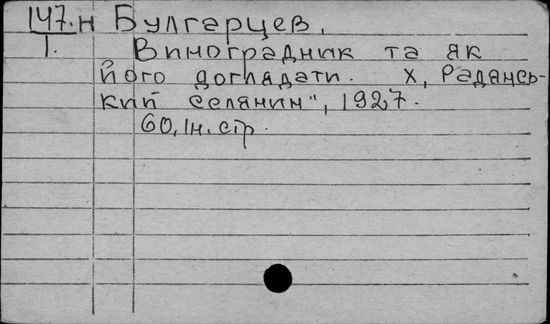 147.н Булгарцев.
1. Виноградник та як
його доглядати. Х, Радянсь-
кий селянин", 1927.
60, Ін. стр.